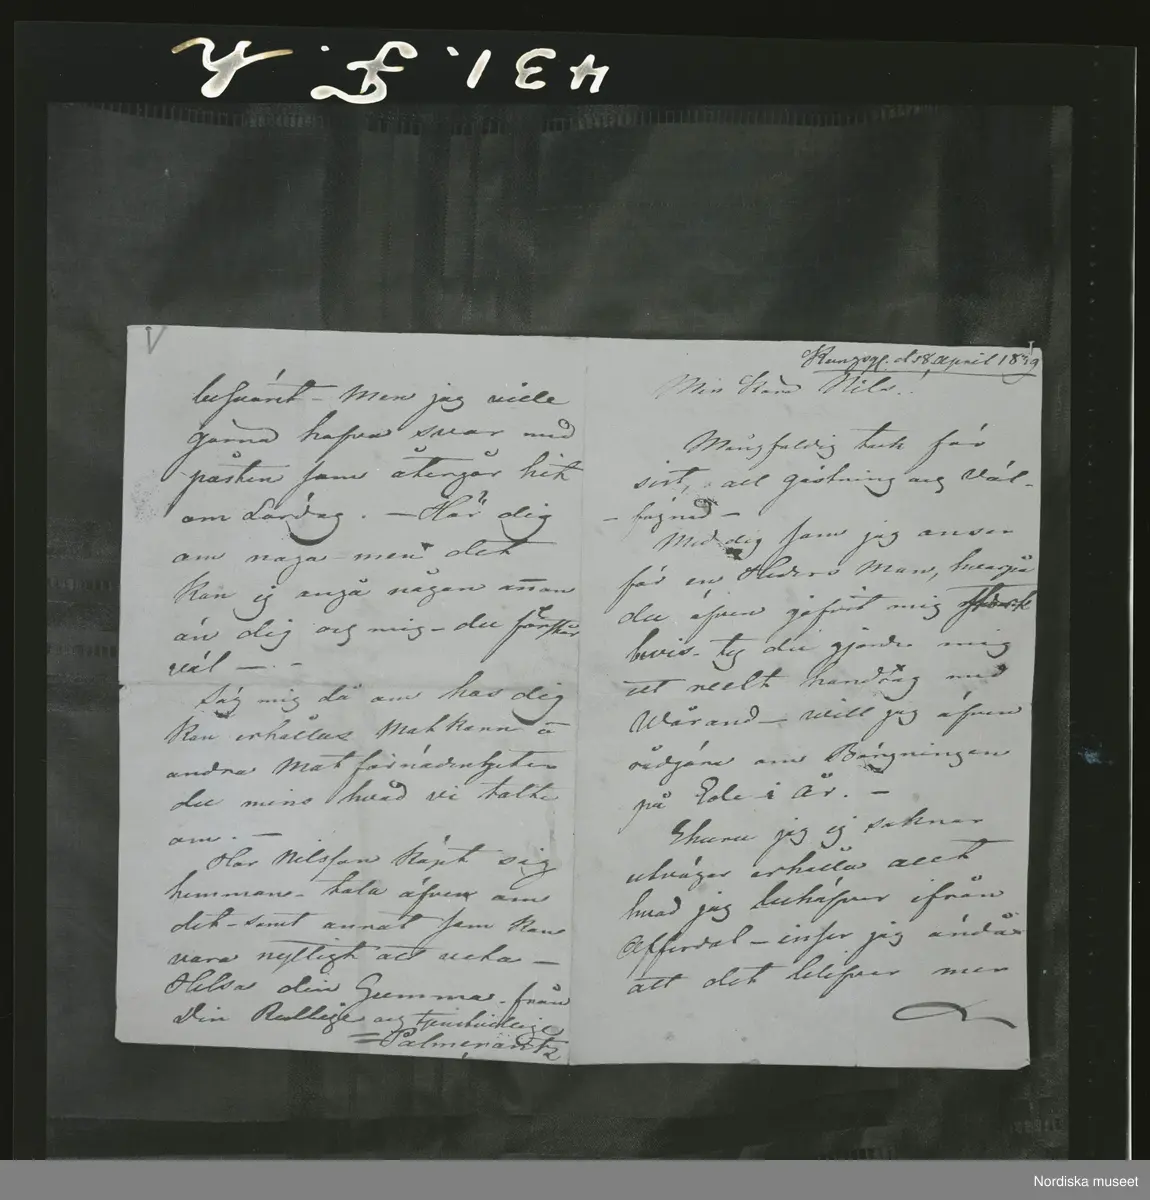 431. F. h
Kungsgl. d. 18 April 1839
Min Kära Nils!
Mångfaldig tack för
sist, all gästning och väl-
fägnad –
Med dig som jag anser
för en Heders Man, hvarpå
du äfven gifvit mig
bevis – ty du gjorde mig
ett reelt handtag med
Wårand – will jag äfven
rådgöra om Bärgningen
på Ede i År. –
Ehuru jag ej saknar
utvägar erhålla allt
hvad jag behöfver ifrån
Offerdal – inser jag ändå
att det blefver mer
besväret – Men jag ville
gärna hafva svar med
posten som återgår hit
om Lördag. – Hör dig
om noga – men det
kan ej angå någon annan
än dig och mig – du förstår
väl –
Säg mig då om hos dig
kan erhållas Matkorn o
andra Matförnödenheter
du mins hvad vi talte
om. –
Har Nilsson köpt sig
hemman – tala äfven om
det – samt annat som kan
vara nyttigt att veta –
Helsa din Gumma – från
Din Redlige och tjenstvillige
Palmcrantz
Nordiska museet